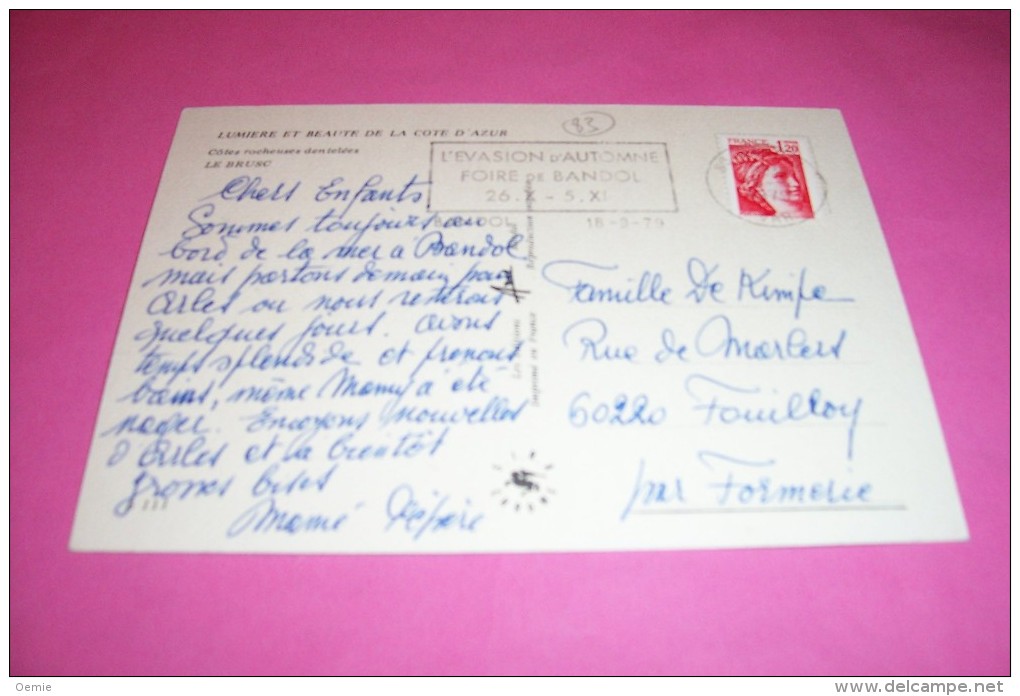 LUMIERE ET BEAUTE DE LA COTE D'AZUR
Côtes rocheuses dentelées
LE BRUSC
83
L'EVASION D'AUTOMNE
FOIRE DE BANDOL
26.X - 5.XI
BANDOL 18-9-79
FRANCE 1,20
Chers Enfants
Sommes toujours au
bord de la mer à Bandol
mais partons demain pour
Arles ou nous resterons
quelques jours. avons
temps splendide et prenons
bains, même Mamy a été
nager. Envoyons nouvelles
d'Arles et la bientôt
grosses bises
Mamé Pépère
Famille De Kimpe
Rue de
60220 Fouilloy
par Formerie
Imprimé en France
Reproduction
Oemie
www.delcampe.net